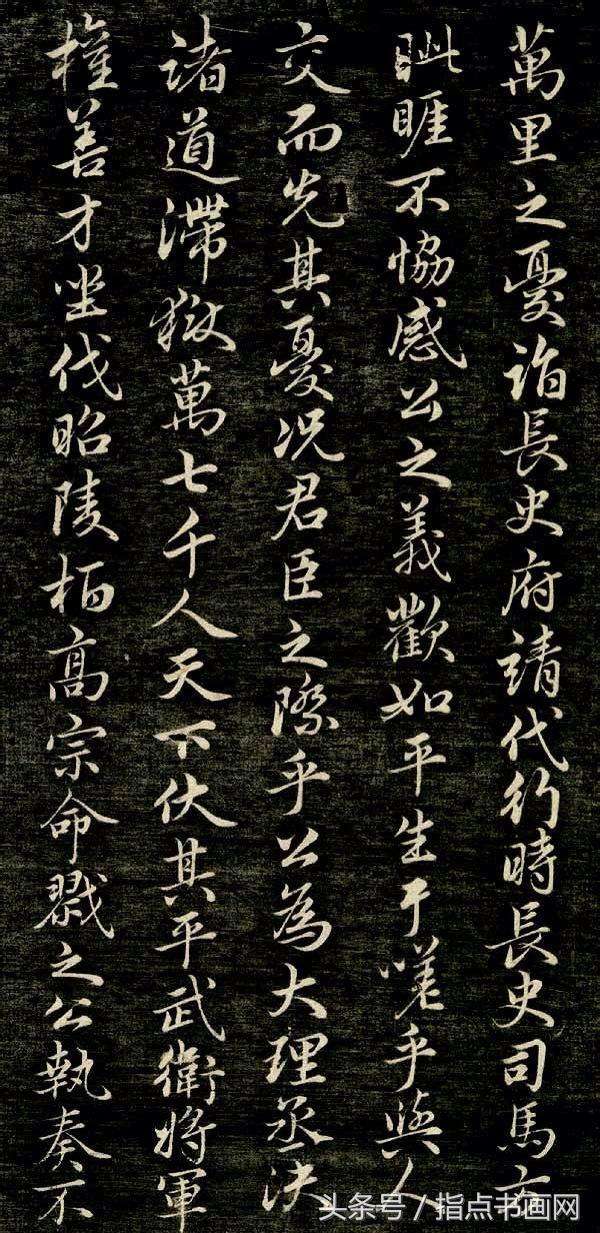 萬里之憂詣長史府請代行時長史司馬方
眦睢不協感公之義歡如平生于嗟乎與人
交而先其憂況君臣之際乎公為大理丞決
諸道滯獄萬七千人天下伏其平武衛將軍
權善才坐伐昭陵栢高宗命戮之公執奏不
头条号／指点书画网